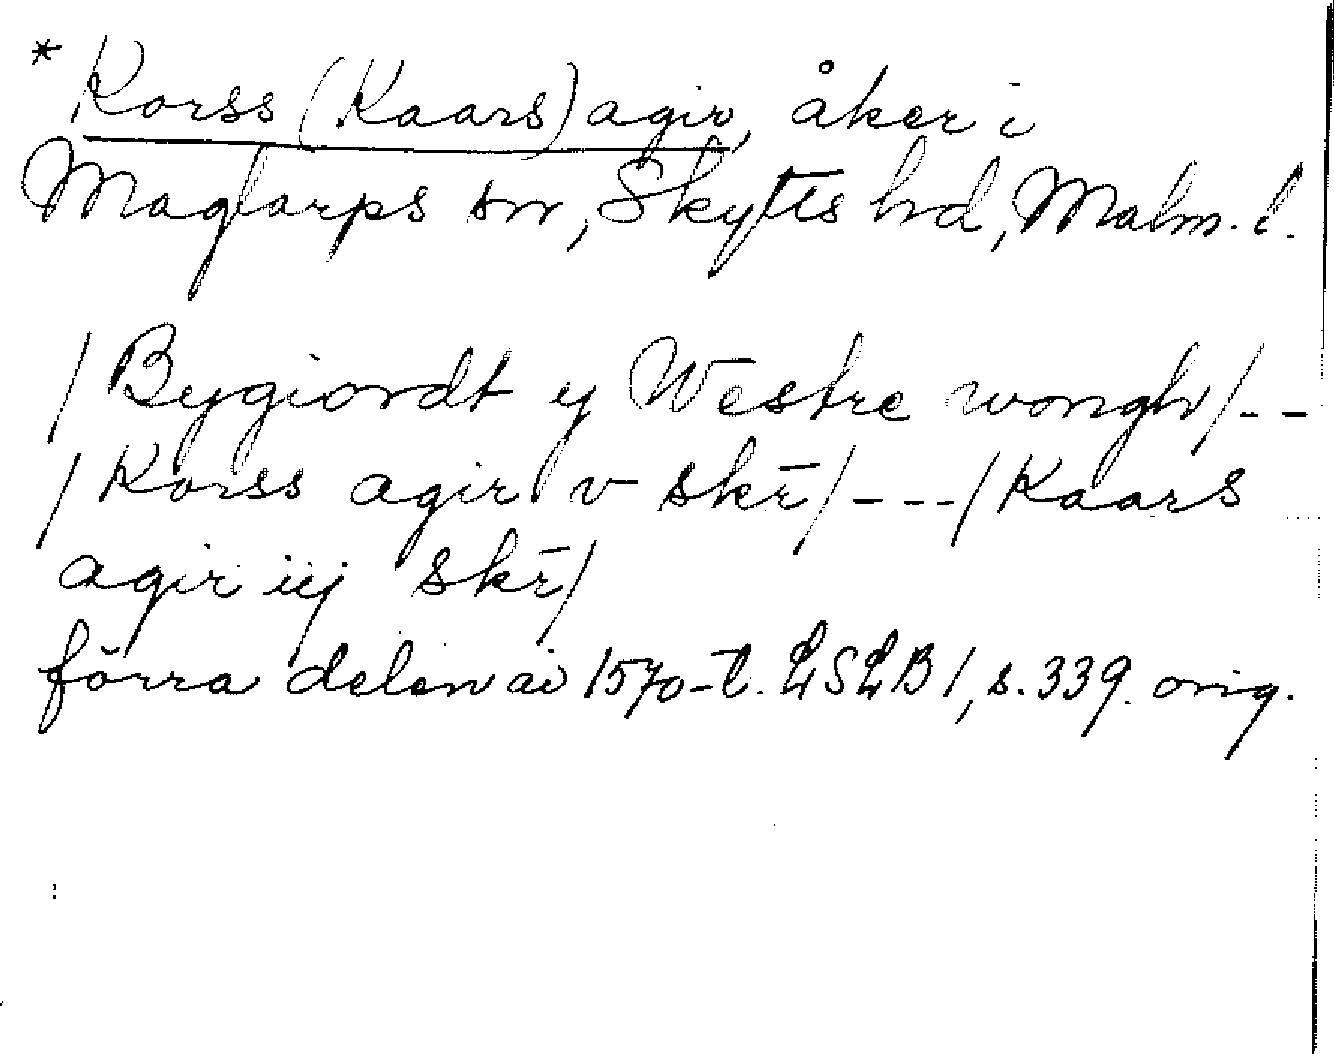 * Korss (Kaars) agir, åker i
Maglarps sn, Skytts hrd, Malm. l.
/Bygiordt y Westre wongh/ - -
/Korss agir v skr̄/ - - - /Kaars
agir iij skr̄/
förra delen av 1570-t. LSLB 1, s. 339. orig.